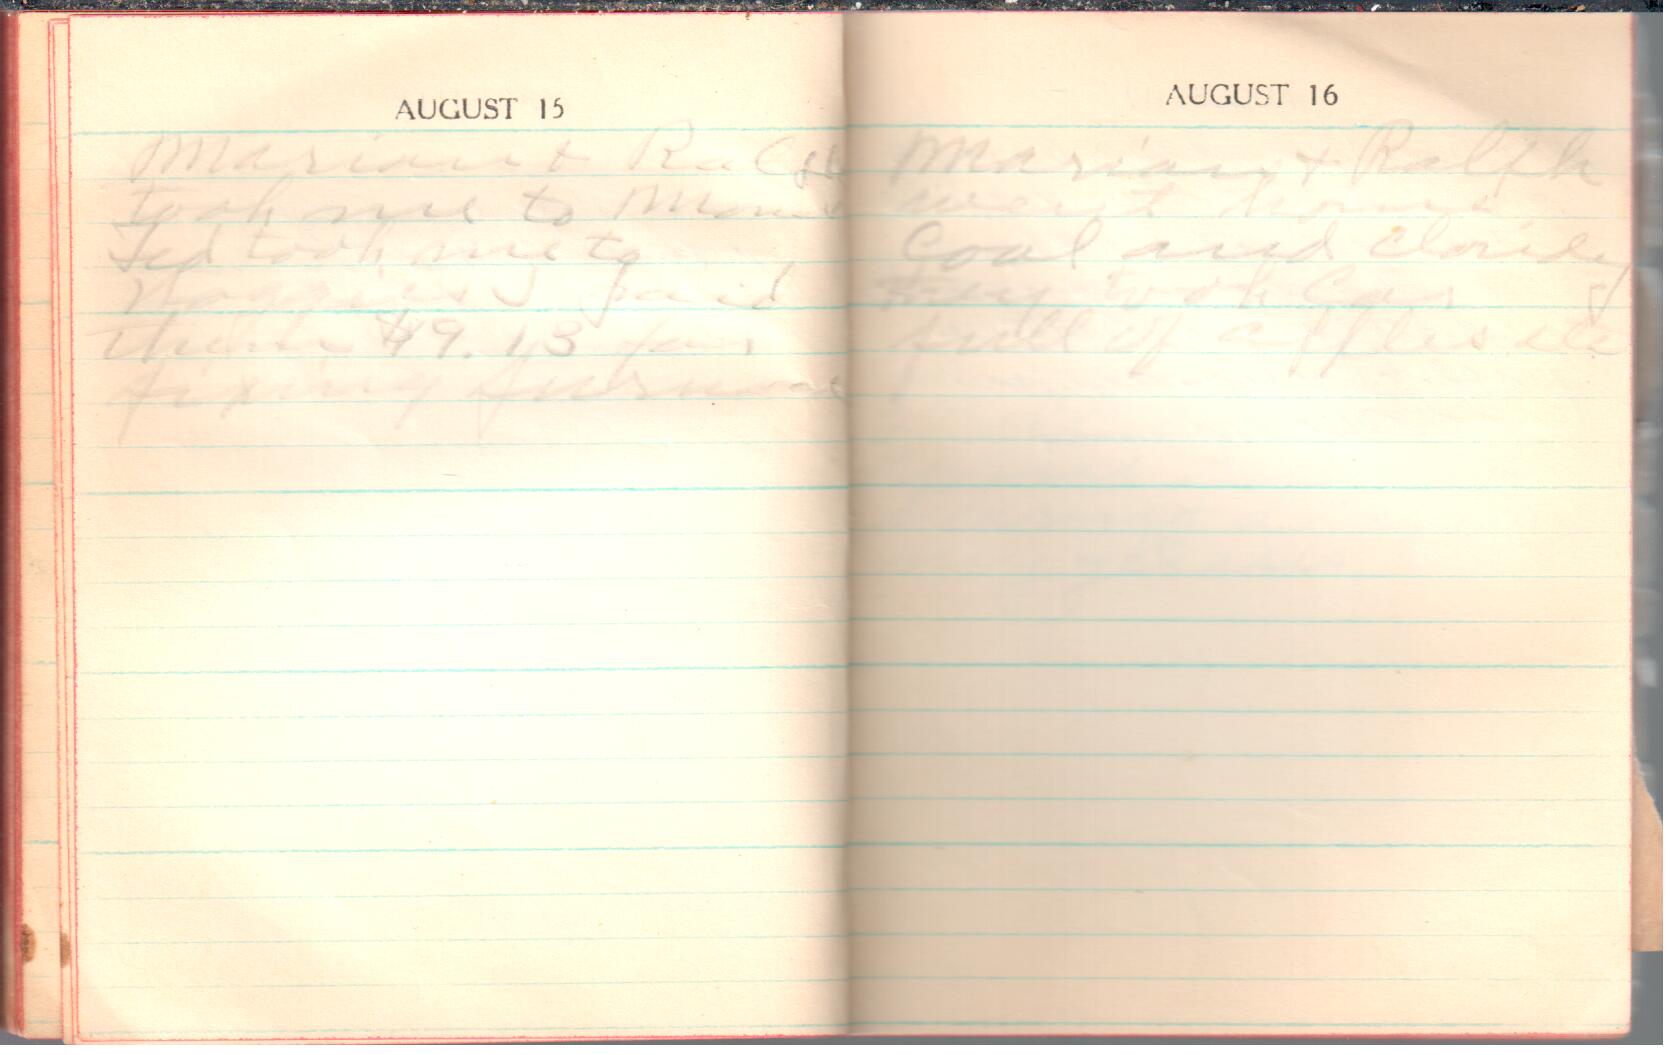 AUGUST 15
Marian + Ralph
took me to
Ted took me to
I paid
$49.13 for
fixing furnace
AUGUST 16
Marian + Ralph
went home
Coal and cloudy
they took Car
full of apples etc